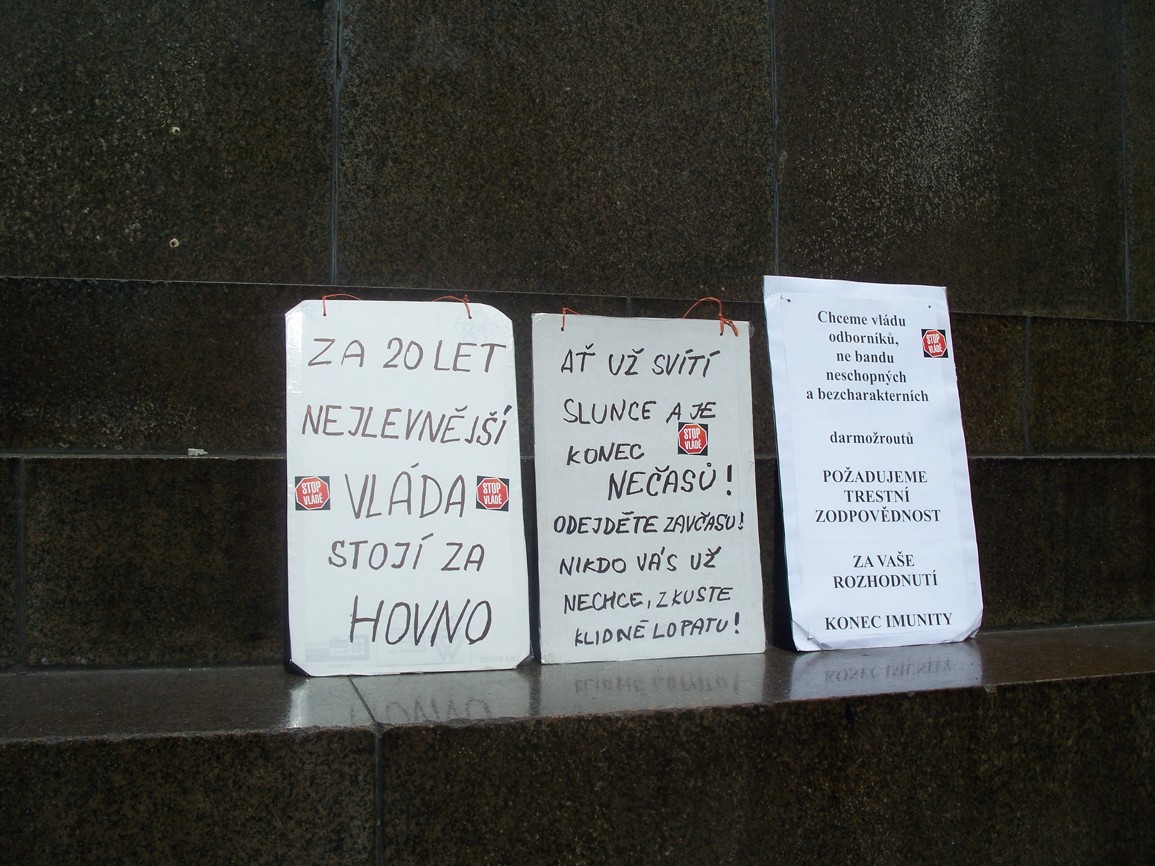 ZA 20 LET
NEJLEVNĚJŠÍ
STOP
VLÁDĚ
VLÁDA
STOP
VLÁDĚ
STOJÍ ZA
HOVNO
AŤ UŽ SVÍTÍ
SLUNCE A JE
KONEC
STOP
VLÁDĚ
NEČASŮ!
ODEJDĚTE ZAVČASU!
NIKDO VÁS UŽ
NECHCE, ZKUSTE
KLIDNĚ LOPATU!
Chceme vládu
odborníků,
STOP
VLÁDĚ
ne bandu
neschopných
a bezcharakterních
darmožroutů
POŽADUJEME
TRESTNÍ
ZODPOVĚDNOST
ZA VAŠE
ROZHODNUTÍ
KONEC IMUNITY